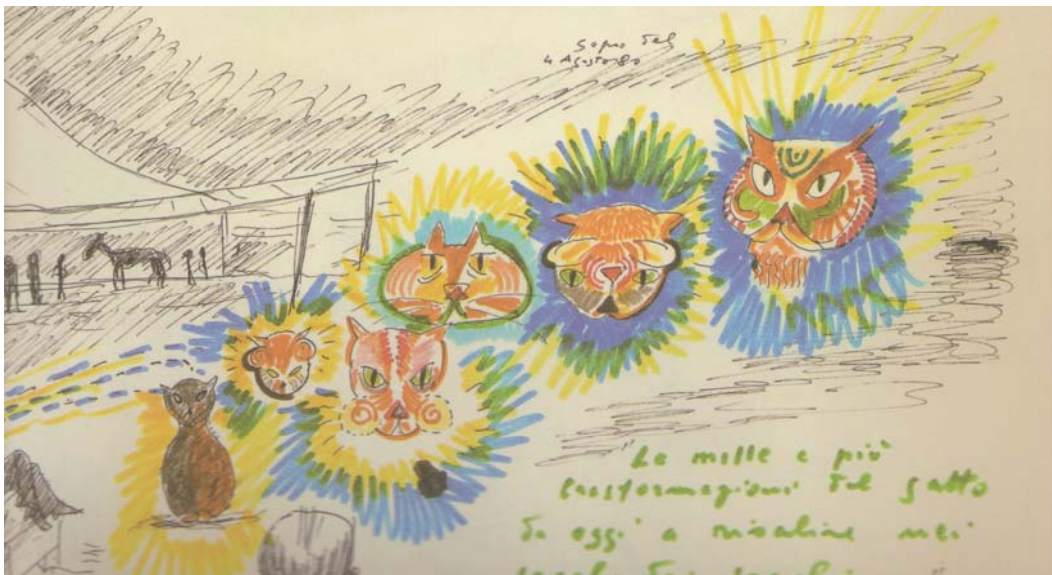 Sogno del
4 Agosto 80
Le mille e più
trasformazioni del gatto
da oggi a risalire nei
secoli dei secoli